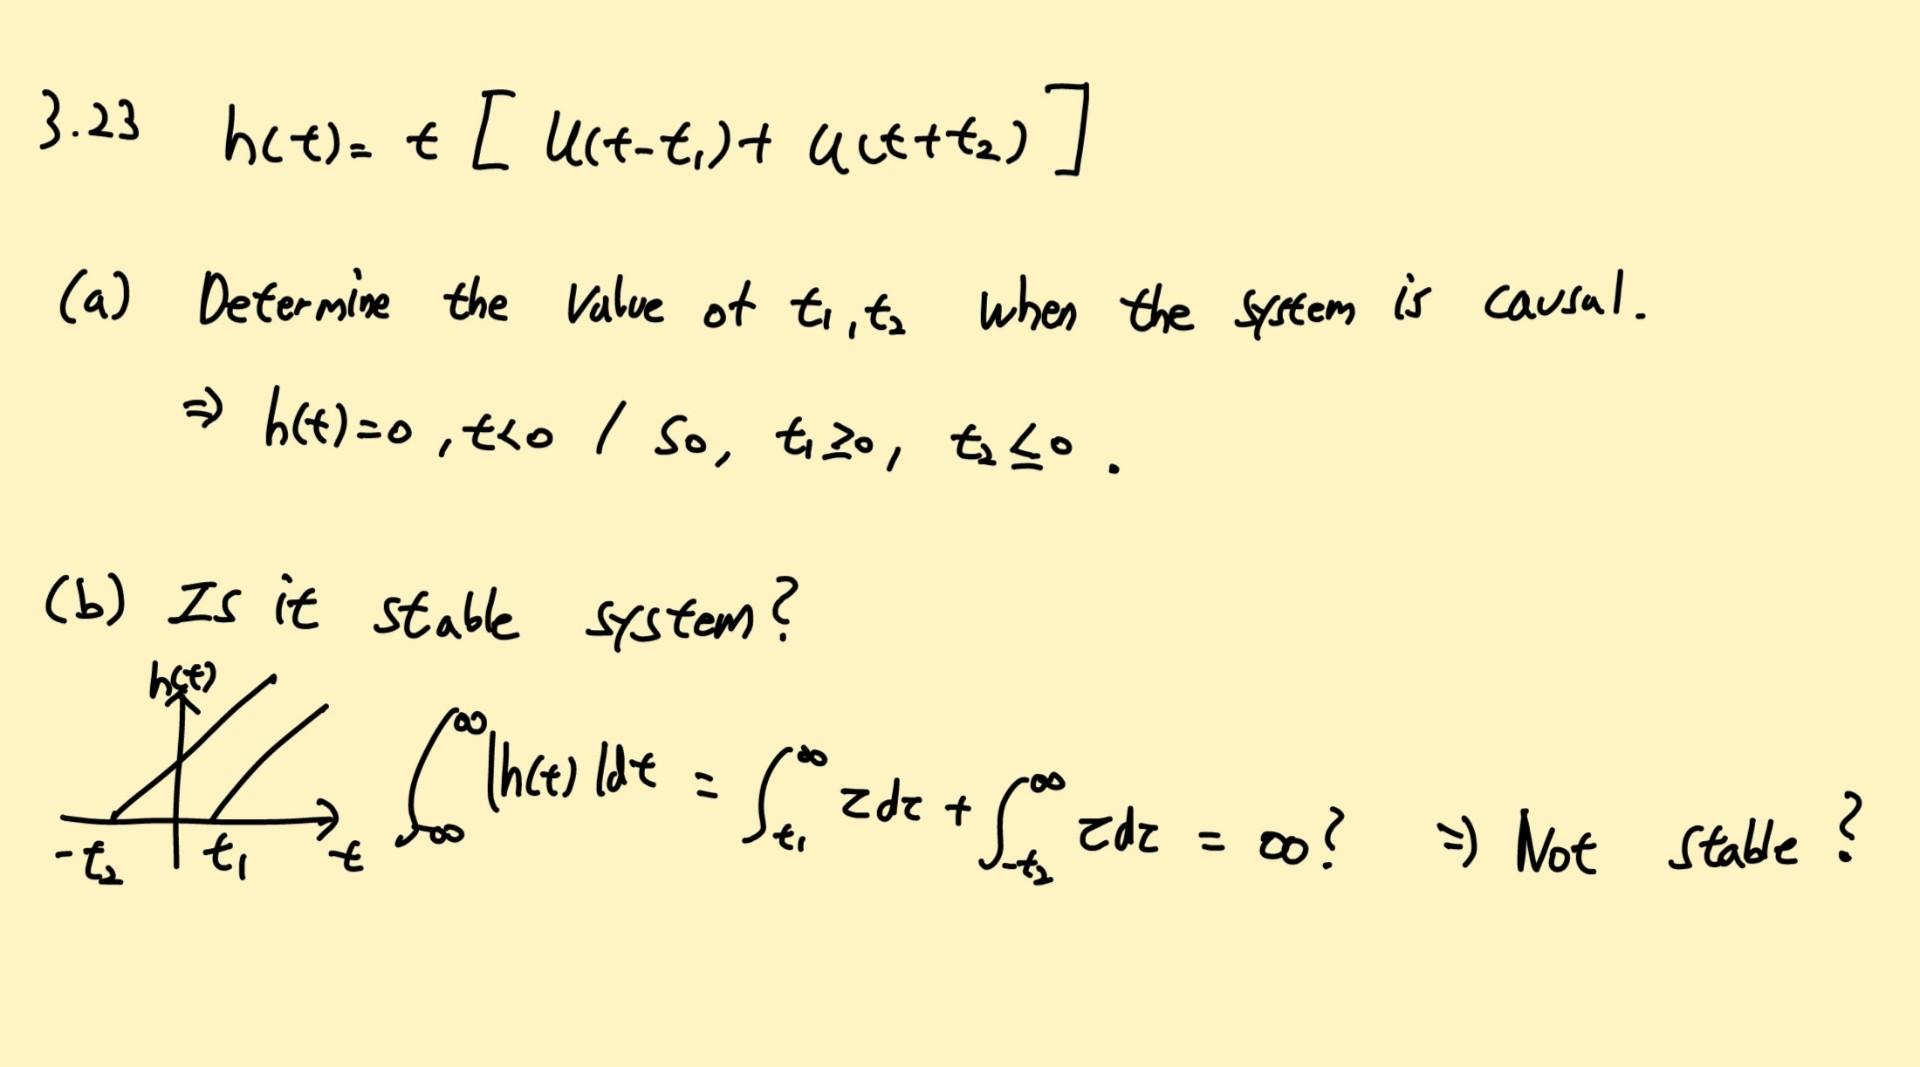 3.23 h(t)= t [ u(t-t₁)+ u(t+t₂) ]
(a) Determine the value of t₁, t₂ when the system is causal.
⇒ h(t)=0 , t<0 / So, t₁≥0, t₂≤0 .
(b) Is it stable system?
h(t)
-t₂ t₁ t
∫_{-∞}^{∞} |h(t)|dt = ∫_{t₁}^{∞} τdτ + ∫_{-t₂}^{∞} τdτ = ∞? ⇒ Not stable?